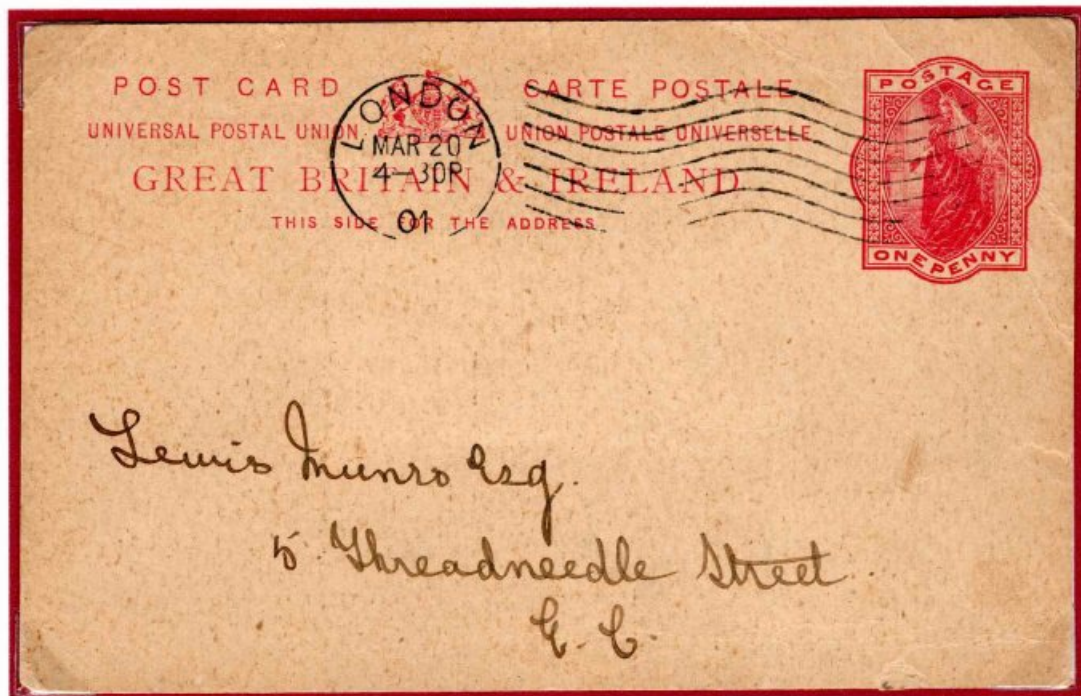 POST CARD CARTE POSTALE
UNIVERSAL POSTAL UNION UNION POSTALE UNIVERSELLE
GREAT BRITAIN & IRELAND
THIS SIDE FOR THE ADDRESS
LONDON
MAR 20
4-30P
01
POSTAGE
ONE PENNY
Lewis Munro Esq.
5 Threadneedle Street
E. C.